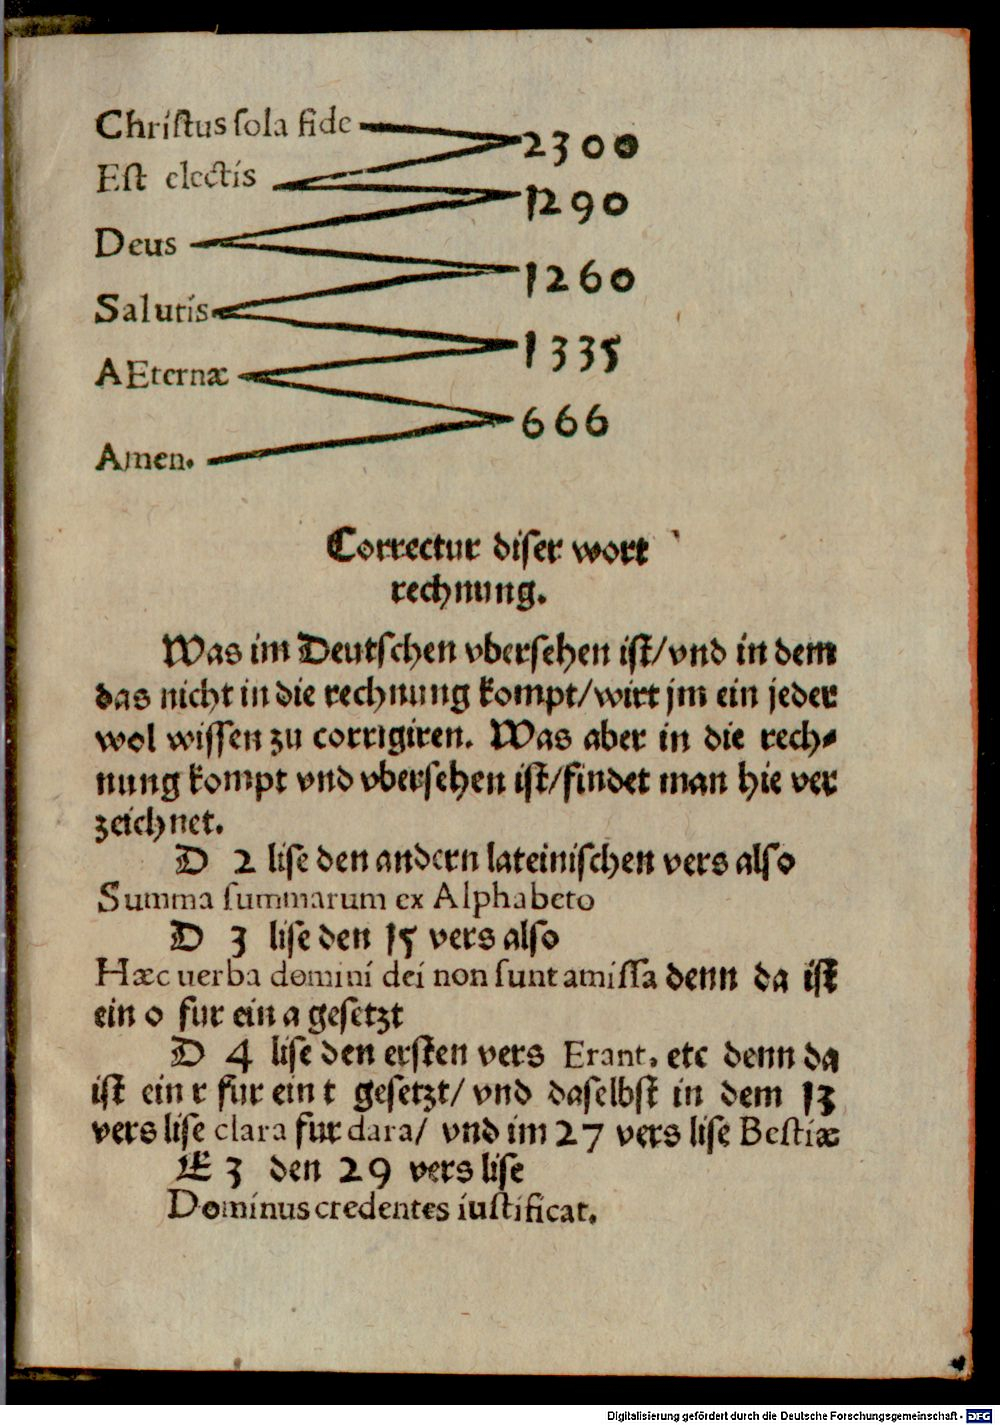 Chriſtus ſola fide
2300
Eſt electis
1290
Deus
1260
Salutis
1335
AEternæ
666
Amen.
Correctur diſer wort
rechnung.
Was im Deutſchen vberſehen iſt/vnd in dem
das nicht in die rechnung kompt/wirt jm ein jeder
wol wiſſen zu corrigiren. Was aber in die rech⸗
nung kompt vnd vberſehen iſt/findet man hie ver
zeichnet.
D 2 liſe den andern lateiniſchen vers alſo
Summa ſummarum ex Alphabeto
D 3 liſe den 15 vers alſo
Hæc uerba domini dei non ſunt amiſſa denn da iſt
ein o fur ein a geſetzt
D 4 liſe den erſten vers Erant. etc denn da
iſt ein r fur ein t geſetzt/ vnd daſelbſt in dem 13
vers liſe clara fur dara/ vnd im 27 vers liſe Beſtiæ
E 3 den 29 vers liſe
Dominus credentes iuſtificat.
Digitalisierung gefördert durch die Deutsche Forschungsgemeinschaft - DFG